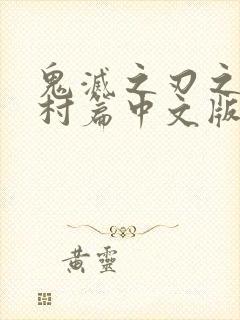 鬼滅之刃之
村篇中文版
黄靈